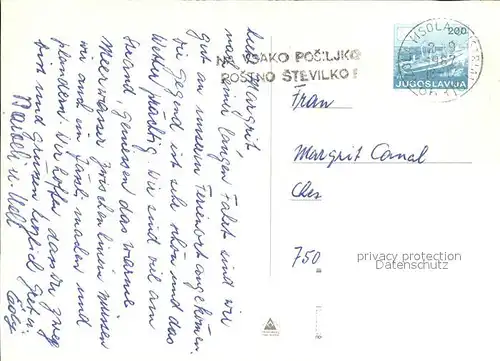 Liebe Margrit
nach einer langen Fahrt sind wir
gut an unserem Ferienort angekommen.
Die Gegend ist sehr schön und das
Wetter prächtig. Wir sind viel am
Strand, geniessen das warme
Meerwasser. Zwischen hinein müssen
wir auch ein Gästli machen und
plaudern. Wir hoffen dass Du zwäg
bist und grüssen herzlich Gret u.
u. Ueli
NA VSAKO POŠILJKO
POŠTNO ŠTEVILKO!
ISOLA
200
JUGOSLAVIJA
Frau
Margrit Canal
750
privacy protection
Datenschutz